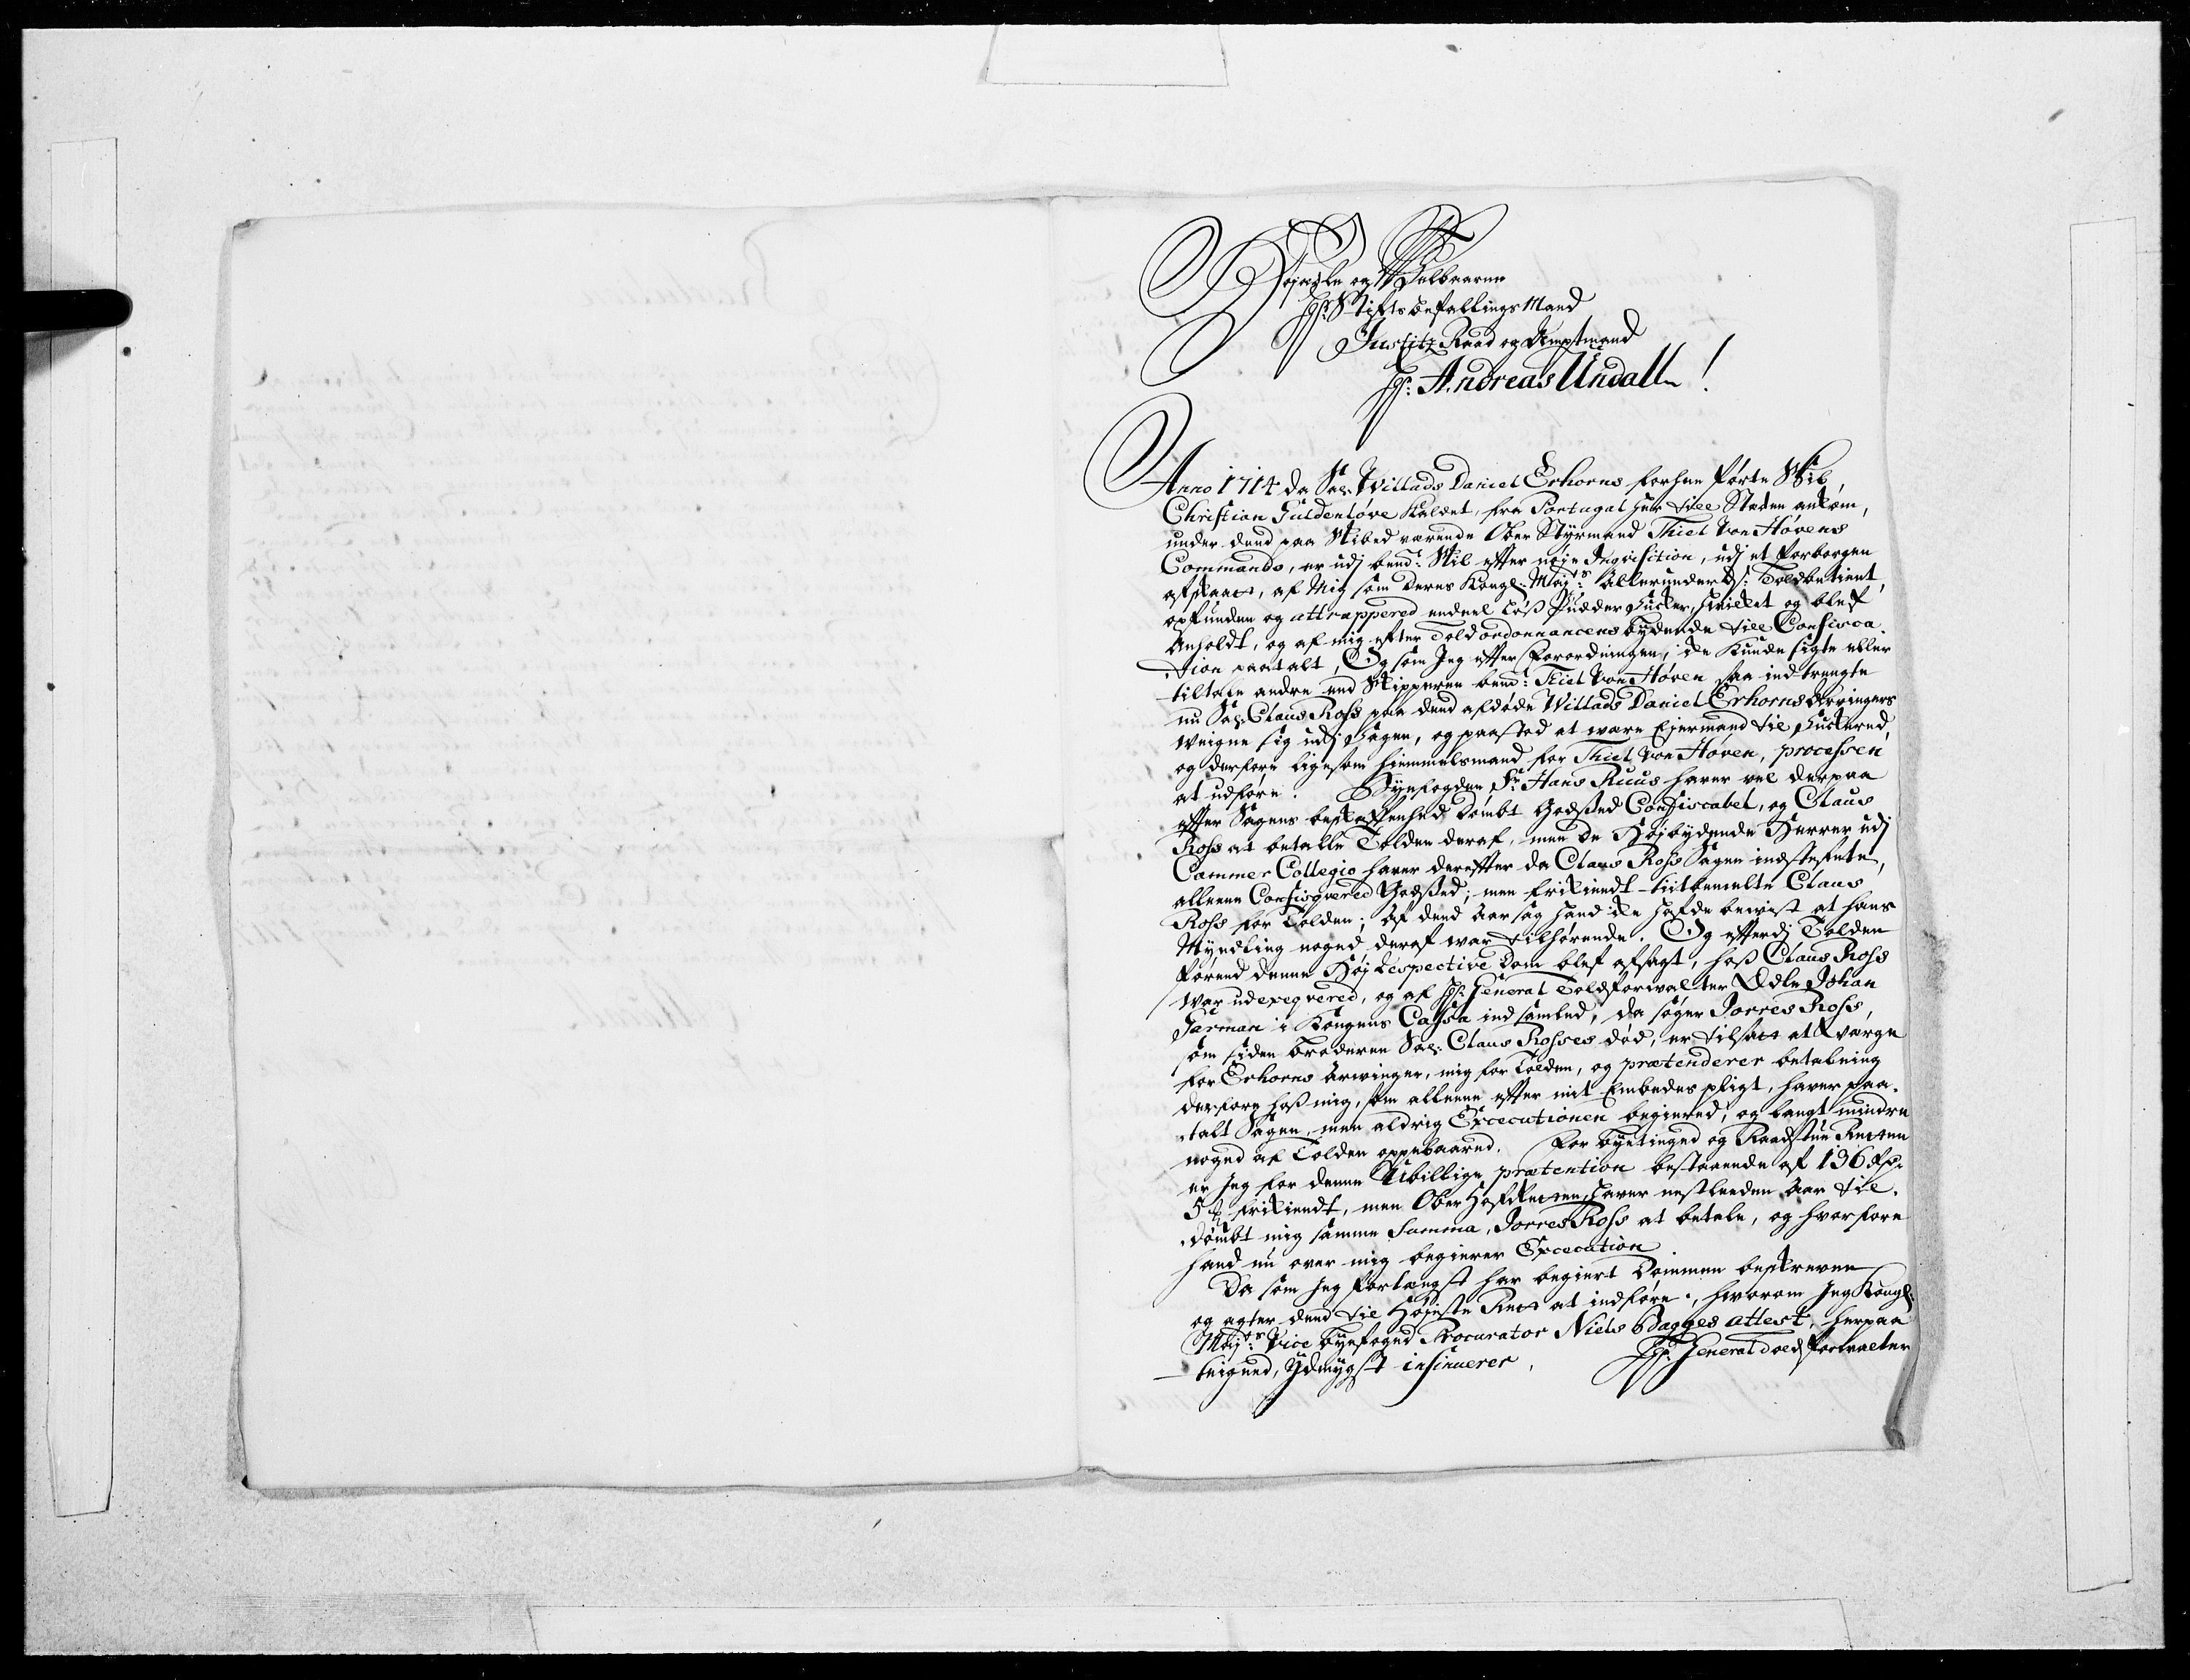 Højædle og Velbaarne
Hr: Stiftsbefallings Mand
Justitz Raad og Amptmand
Hr: Andreas Undall!
Anno 1714 da Sal: Willads Daniel Erhorns forhen førte Skib,
Christian Guldenløve Kaldet, fra Portugal her till Staden ankom,
under dend paa Skibed værende Ober Styrmand Thiel Von Høvens
Commando, er udj bemt: Skib efter nøye Inqvisition, udj et forborgen
afskaared, af Mig som Deres Kongl: Mayts: Allerunderds: Toldbetient,
opfunden og attrapperet endeel Løß Pudder Sucker, hvilket og blef
Anholdt, og af mig efter Told ordonnancens bydende till Confisca-
tion paatalt, Og som Jeg efter forordningen, ike Kunde sigte eller
tiltale andre end Skipperen bemt: Thiel Von Høven saa indtrengte
nu Sal: Claus Ross paa dend afdøde Willads Daniel Erhorns Arvingers
Weigne sig udj Sagen, og paastod at være Ejermand til Suckered,
og derfore ligesom hiemmelsmand for Thiel Von Høven, processen
at udføre. Byefogden Sr: Hans Ruus haver vel derpaa
efter Sagens beskaffenhed dømbt Godsed Confiscabel, og Claus
Ross at betalle Tolden deraf, men de Højbydende Herrer udj
Cammer Collegio haver derefter da Claus Ross Sagen indstefnte,
alleene Confisqvered Godsed; men frikiendt titbemelte Claus
Ross for Tolden; Af dend Aarsag hand ike hafde bevist at hans
Myndling noged deraf war tilhørende. Og efterdj Tolden
forend denne Høj Respective Dom blef afsagt, hoß Claus Ross
war udexeqvered, og af Hr: General Toldforvalter Ædle Johan
Garman i Kongens Cassa indsamled, da søger Jorres Ross,
som siden Broderen Sal: Claus Rosses død, er tilsat at Værge
for Erhorns Arvinger, mig for Tolden, og prætenderer betalning
derfore hoß mig, som alleene efter mit Embedes pligt, haver paa-
talt Sagen, men aldrig Execcutionen begiered, og langt mindre
noged af Tolden oppebaared. For byetinged og Raadstue Retten
er Jeg for denne Ubillige prætention bestaaende af 136 Rdr
5 ß frikiendt, men Ober Hof Retten haver nestleeden Aar til-
dømbt mig samme Summa, Jorres Ross at betale, og hvorfore
hand nu over mig begierer Execcution
Da som Jeg forlængst har begiert Dommen beskreven
og agter dend til Højeste Rett at indføre, hvorom Jeg Kongl:
Mayts: Vice byefoged Procurator Niels Bagges attest, herpaa
teigned, Ydmygst insinuerer, Hr: General Toldforvalter